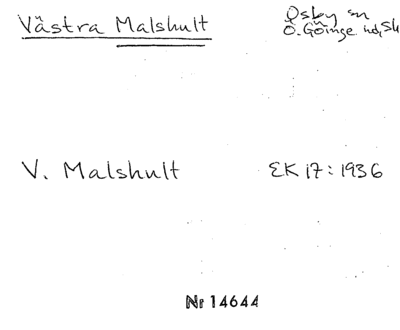 Västra Malshult
Osby sn
Ö. Göinge hd, Sk
V. Malshult
EK 17:1936
Nr 14644